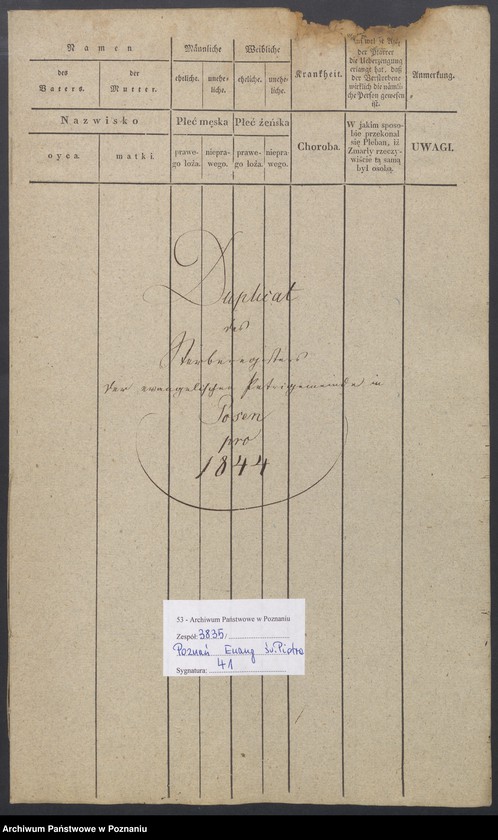 Namen
des
Vaters.
der
Mutter.
Männliche
eheliche.
unehe-
liche.
Weibliche
eheliche.
unehe-
liche.
Krankheit.
der Pfarrer
die Ueberzeugung
erlangt hat, daß
der Verstorbene
wirklich die nämli-
che Person gewesen
ist.
Anmerkung.
Nazwisko
oyca.
matki.
Płeć męska
prawe-
go łoża.
niepra-
wego.
Płeć żeńska
prawe-
go łoża.
niepra-
wego.
Choroba.
W jakim sposo-
bie przekonał
się Pleban, iż
Zmarły rzeczy-
wiście tą samą
był osobą.
UWAGI.
Duplicat
des
Sterberegisters
der evangelischen Petrigemeinde in
Posen
pro
1844
53 - Archiwum Państwowe w Poznaniu
Zespół: 3835/
Poznań Ewang św. Piotra
Sygnatura: 41
Archiwum Państwowe w Poznaniu